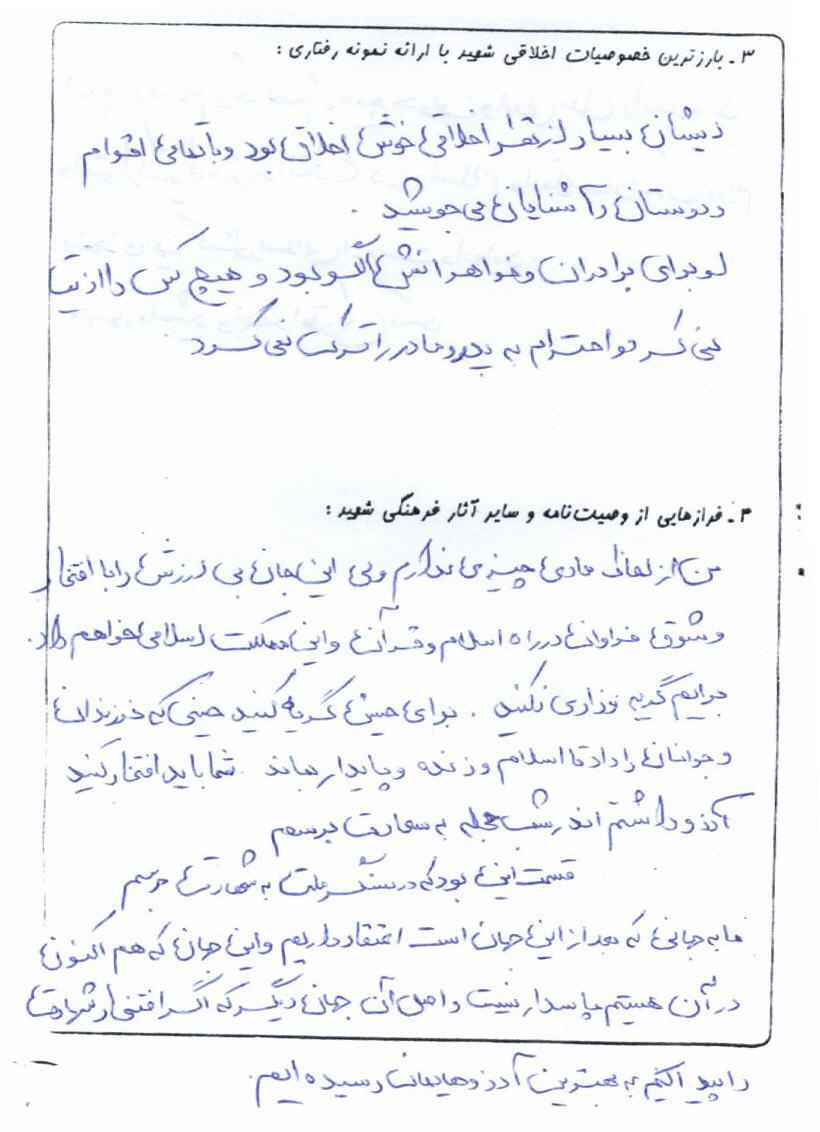 ۳ـ بارزترین خصوصیات اخلاقی شهید با ارائه نمونه رفتاری :
ایشان بسیار از نظر اخلاقی خوش اخلاق بود و با تمامی اقوام
و دوستان و آشنایان می جوشید .
او برای برادران و خواهرانش الگو بود و هیچ کس را اذیت
نمی کرد و احترام به پدر و مادر را ترک نمی کرد
۴ـ فرازهایی از وصیت‌نامه و سایر آثار فرهنگی شهید :
من از لحاظ مادی چیزی ندارم ولی این جان بی ارزش را با افتخار
و شوق فراوان در راه اسلام و قرآن و این مملکت اسلامی خواهم داد.
برایم گریه و زاری نکنید . برای حسین گریه کنید حسینی که فرزندان
و جوانان را داد تا اسلام زنده و پایدار بماند شما باید افتخار کنید
آرزو داشتم اندر شب حجله به سعادت برسم
قسمت این بود که در سنگر ملت به شهادت برسم
ما به جهانی که بعد از این جهان است اعتقاد داریم و این جهان که هم اکنون
در آن هستیم پاسدار نیست و اصل آن جهان دیگر که اگر افتخار شهادت
را پیدا کنیم به بهترین آرزوهایمان رسیده ایم.